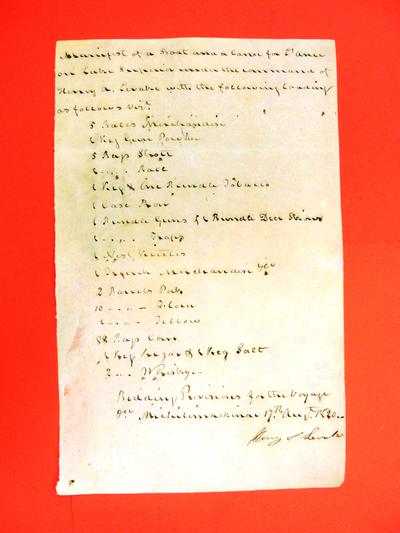 Manifest of a Boat and a Canoe for L'ance
on Lake Superior under the command of
Henry A. Levake with the following loading
as follows Viz.
5 Bales Merchandise
1 Keg Gun Powder
5 Bags Shott
1 " " Ball
1 Keg & One Bundle Tobacco
1 Case Iron
1 Bundle Guns & 1 Bundle Deer Skins
1 " " Traps
1 Nest Kettles
1 Trunk Merchandise &c
2 Barrels Pork
10 " " Flour
" " Tallow
88 Bags Corn
1 Keg Sugar & 1 Keg Salt
2 " " Whisky
Bedding Provisions for the Voyage
Michilimackinac 17th Augt. 1820
Henry A Levake